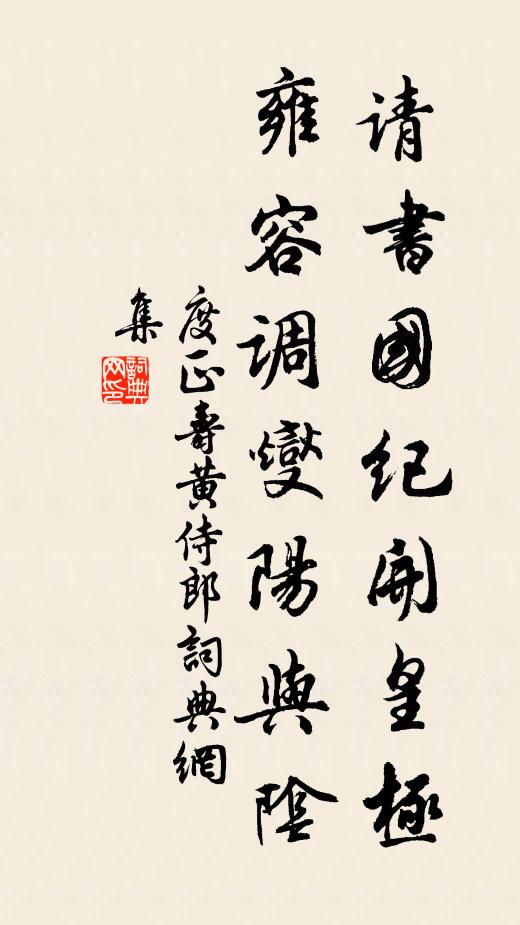 请書國紀開皇極
雍容調燮陽與陰
度正壽黃侍郎詞典網
集
詞典网印